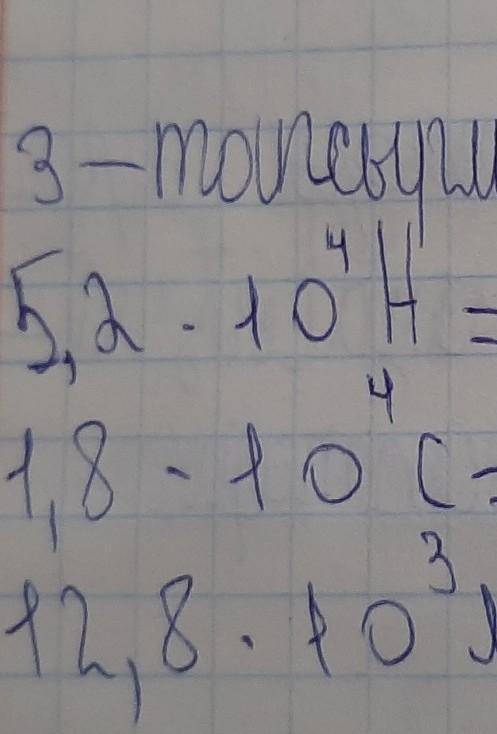 3-тапсырм
5,2 · 10⁴ Н =
1,8 · 10⁴ С =
12,8 · 10³